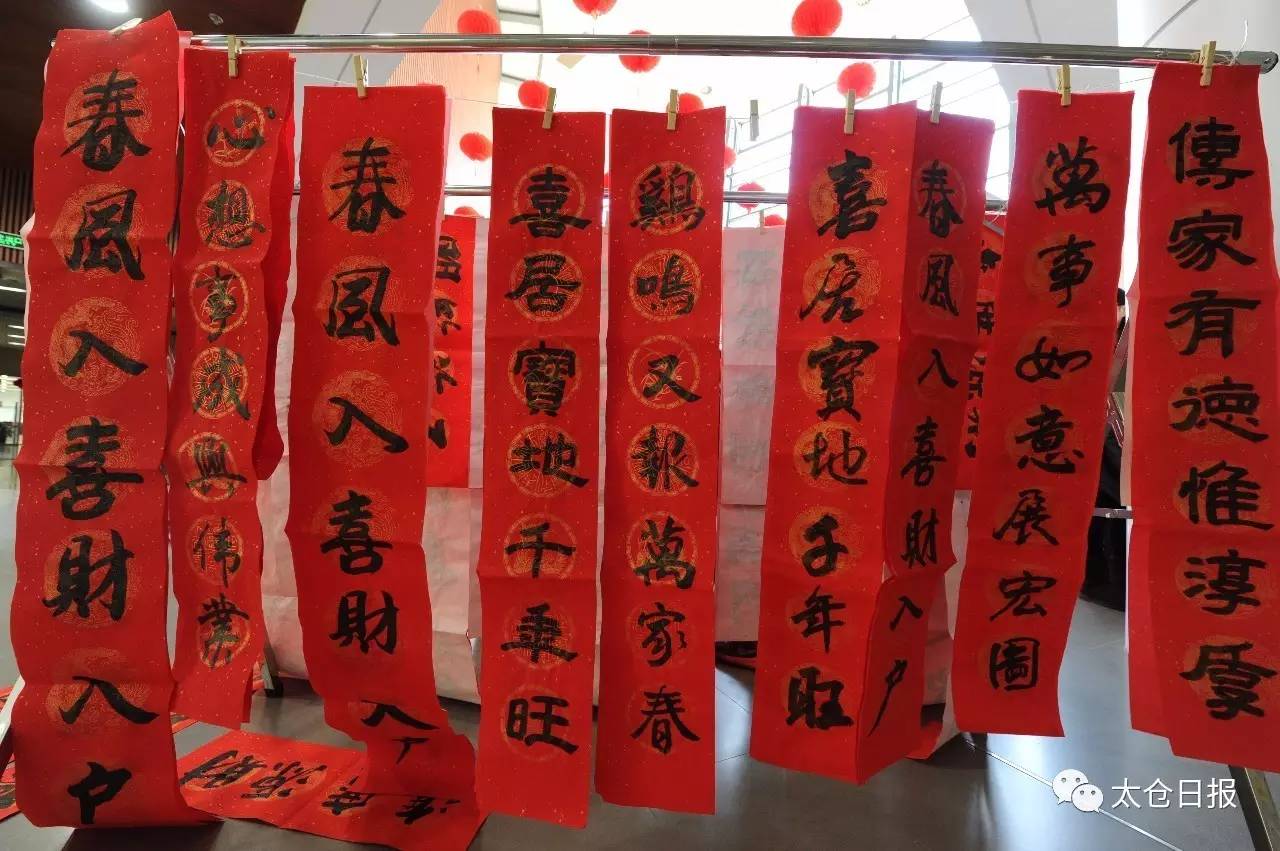 春風入喜財入户
心想事成興偉業
春風入喜財入
喜居寶地千年旺
鷄鳴又報萬家春
喜居寶地千年旺
春風入喜財入户
萬事如意展宏圖
傳家有德惟淳厚
太仓日报